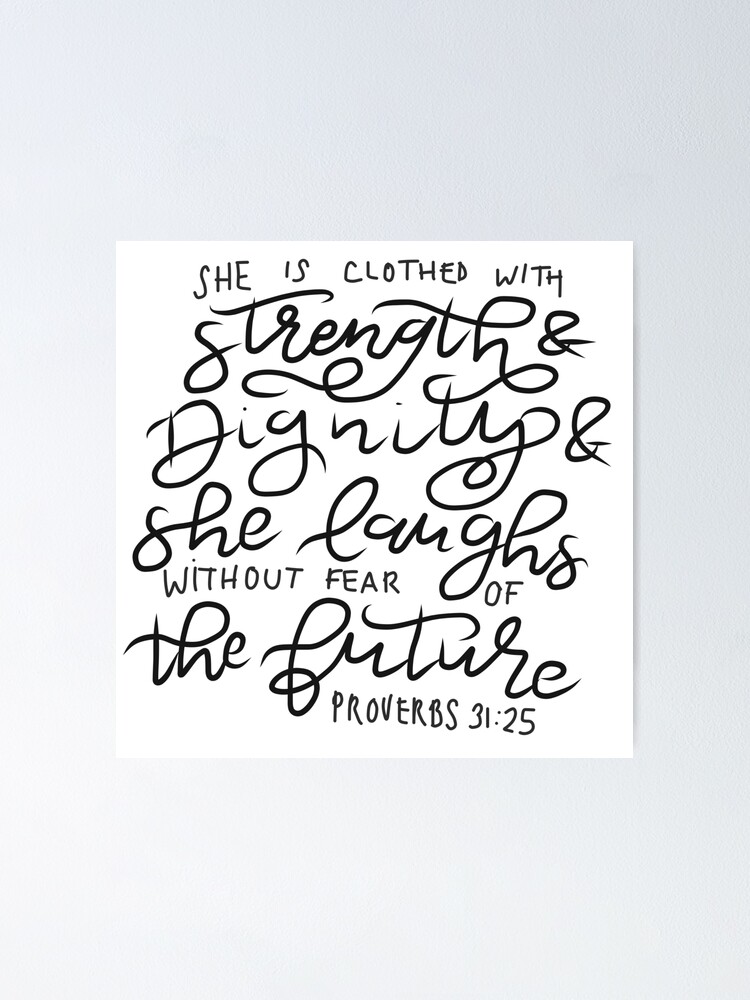 SHE IS CLOTHED WITH
strength &
Dignity &
she laughs
WITHOUT FEAR OF
the future
PROVERBS 31:25